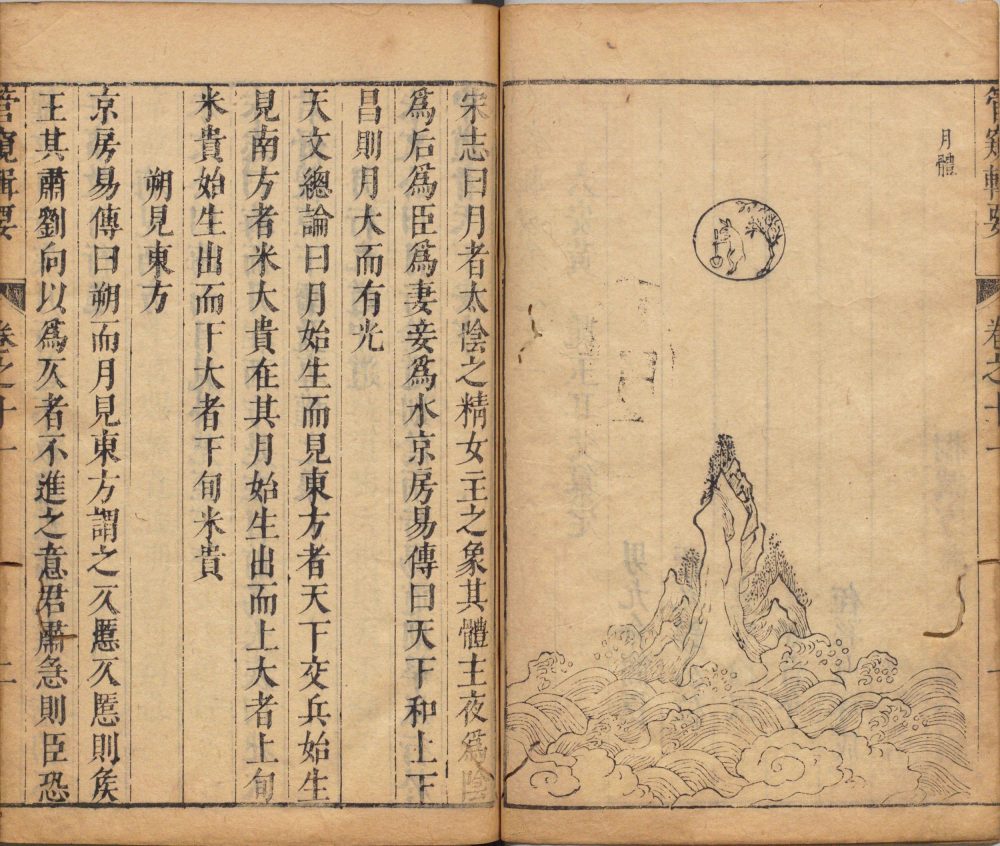 管窺輯要 卷之十一 一
月體
宋志曰月者太陰之精女主之象其體主夜爲陰
爲后爲臣爲妻妾爲水京房易傳曰天下和上下
昌則月大而有光
天文總論曰月始生而見東方者天下交兵始生
見南方者米大貴在其月始生出而上大者上旬
米貴始生出而下大者下旬米貴
朔見東方
京房易傳曰朔而月見東方謂之仄慝仄慝則矦
王其肅劉向以爲仄者不進之意君肅急則臣恐
管窺輯要 卷之十一 二